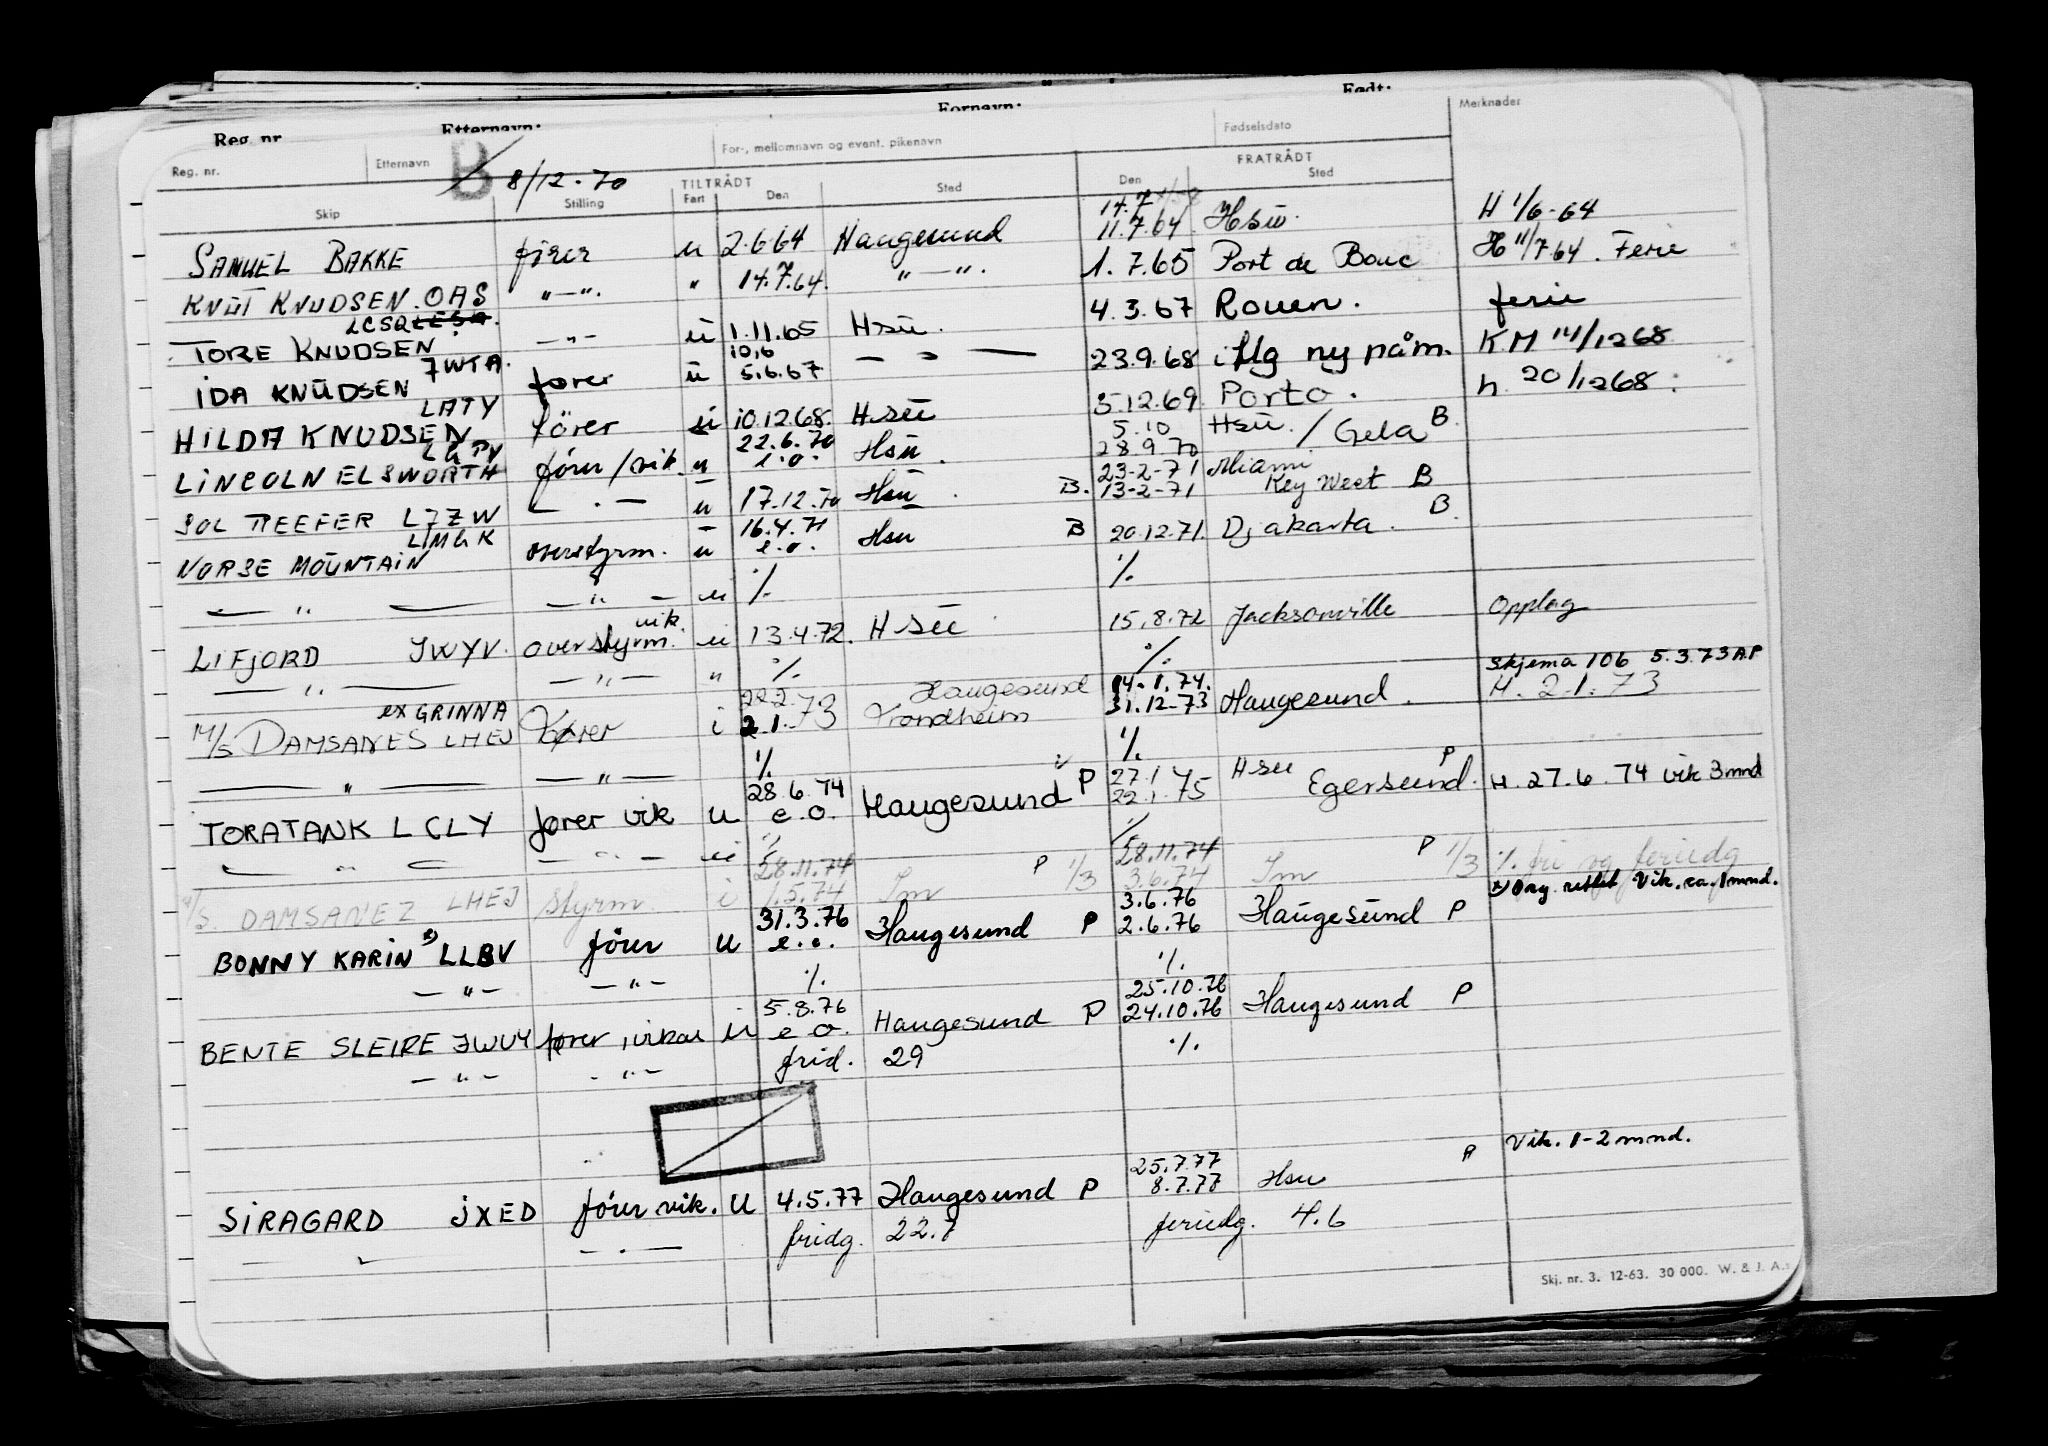 Reg. nr. Etternavn: Fornavn: Født:
Reg. nr. Etternavn For-, mellomnavn og event. pikenavn Fødselsdato Merknader
B 8/12-70
TILTRÅDT FRATRÅDT
Skip Stilling Fart Den Sted Den Sted
14.7
SAMUEL BAKKE fører u 2.6.64 Haugesund 11.7.64 Hsu. H 1/6-64
KNUT KNUDSEN OAS " — ". " 14.7.64. " — ". 1.7.65 Port de Bouc H 11/7.64. Ferie
LCSQ
TORE KNUDSEN — " — u 1.11.65 Hsu. 4.3.67 Rouen. ferie
JWTA. 10.6
IDA KNUDSEN fører u 5.6.67 — " — 23.9.68 iflg ny påm. KM 14/1268
LATY
HILDA KNUDSEN fører u 10.12.68. Hsu 5.12.69 Porto. h. 20/1268.
22.6.70 5.10 Hsu. / Gela B
LINCOLN ELSWORTH fører/vik. u e.o. Hsu. 28.9.70
23-2-71 Miami
SOL REEFER LJZW — " — u 17.12.70 Hsu. B. 13-2-71 Key West B
LMGK 16.4.71 B
NORSE MOUNTAIN overstyrm. u e.o. Hsu B 20.12.71. Djakarta.
— " — — " — u %. %.
vik.
LIFJORD JWYV. overstyrm. u 13.4.72. Hsu 15.8.72 Jacksonville Opplag
— " — — " — " %. %. Skjema 106 5.3.73 AP
ex GRINNA 22.2. Haugesund 14.1.74.
M/S DAMSANES LHEJ Fører i 2.1.73 Trondheim 31.12-73 Haugesund. M. 2.1.73
— " — — " — %. %.
28.6.74 27.1 Hsu P
TORATANK LCLY fører vik u e.o. Haugesund P 22.1.75 Egersund. H. 27.6.74 vik 3 mnd
— " — — " — u %. %.
28.11.74 P 1/3 28.11.74 P 1/3 %. fri og feriedg
M/S. DAMSANEZ LHEJ Styrm. i 1.5.74 Sm 3.6.74 Sm
31.3.76 3.6.76 x) Vik. ca. 1 mnd.
BONNY KARIN x) LLBV fører u e.o. Haugesund P 2.6.76 Haugesund P
— " — — " — %. %.
5.8.76 25.10.76
BENTE SLEIRE JWUY fører, vikar u e.o. Haugesund P 24.10.76 Haugesund P
— " — — " — frid. 29 %.
25.7.77 P Vik. 1-2 mnd.
SIRAGARD JXED fører vik. U 4.5.77 Haugesund P 8.7.77 Hsu
— " — — " — fridg. 22.7 feriedg. 4.6
Skj. nr. 3. 12-63. 30 000. W. & J. A.s